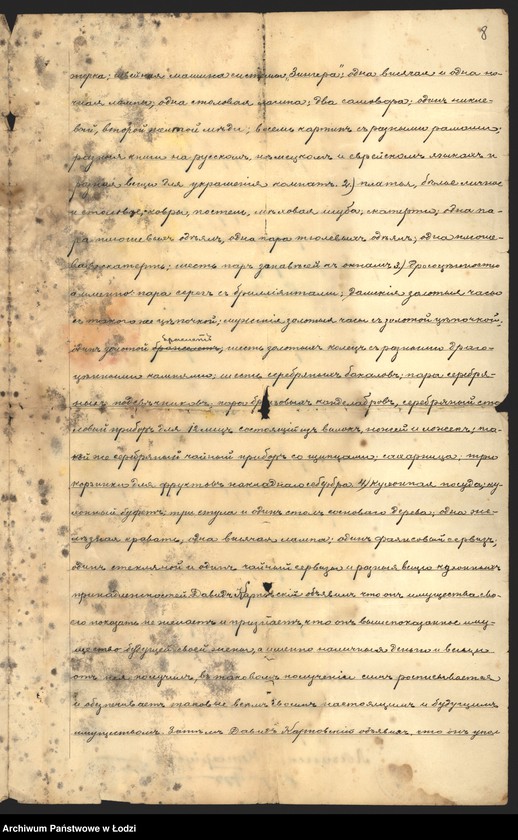 8
терка; швейная машина системы "Зингера"; одна висячая и одна но-
чная лампы; одна столовая лампа; два самовара; одинъ никке-
вый, второй желтой мѣди; восемь картинъ съ разными рамами;
разныя книги на русскомъ, нѣмецкомъ и еврейскомъ языкахъ и
разныя вещи для украшенія комнатъ 2) платья, бѣлье личное
и столовое, ковры, постель, мѣховая шуба, скатерти; одна па-
ра плюшевыхъ одѣялъ, одна пара тюлевыхъ одѣялъ; одна плюше-
вая скатерть; шесть паръ занавѣсей къ окнамъ 3)
а именно: пара серегъ съ брилліянтами; дамскія золотыя часы
съ такою же цѣпочкой; мужскія золотыя часы съ золотой цѣпочкой;
одинъ золотой браслетъ, шесть золотыхъ колецъ съ разными драго-
цѣнными камнями; шесть серебряныхъ бокаловъ; пара серебря-
ныхъ подсвѣчниковъ, пара бронзовыхъ канделабровъ, серебряный сто-
ловый приборъ для 12 лицъ состоящій изъ вилокъ, ножей и ложекъ; та-
кой же серебряный чайный приборъ со щипцами; сахарница; три
корзинки для фруктовъ накладнаго серебра 4) кухонная посуда; ку-
хонный буфетъ; три стула и одинъ столъ сосноваго дерева; одна же-
лѣзная кровать, одна висячая лампа; одинъ фаянсовый сервизъ,
одинъ стеклянной и одинъ чайный сервизы и разныя вещи кухонныхъ
принадлежностей Давидъ Карповскій объявилъ что онъ имущества сво-
его показать не желаетъ и признаетъ, что онъ вышепоказанное иму-
щество будущей своей жены, а именно наличныя деньги и вещи
отъ нея получилъ, въ таковомъ полученіи симъ росписывается
и обезпечиваетъ таковые всемъ своимъ настоящимъ и будущимъ
имуществомъ. Затѣмъ Давидъ Карповскій объявилъ, что онъ упол-
Archiwum Państwowe w Łodzi